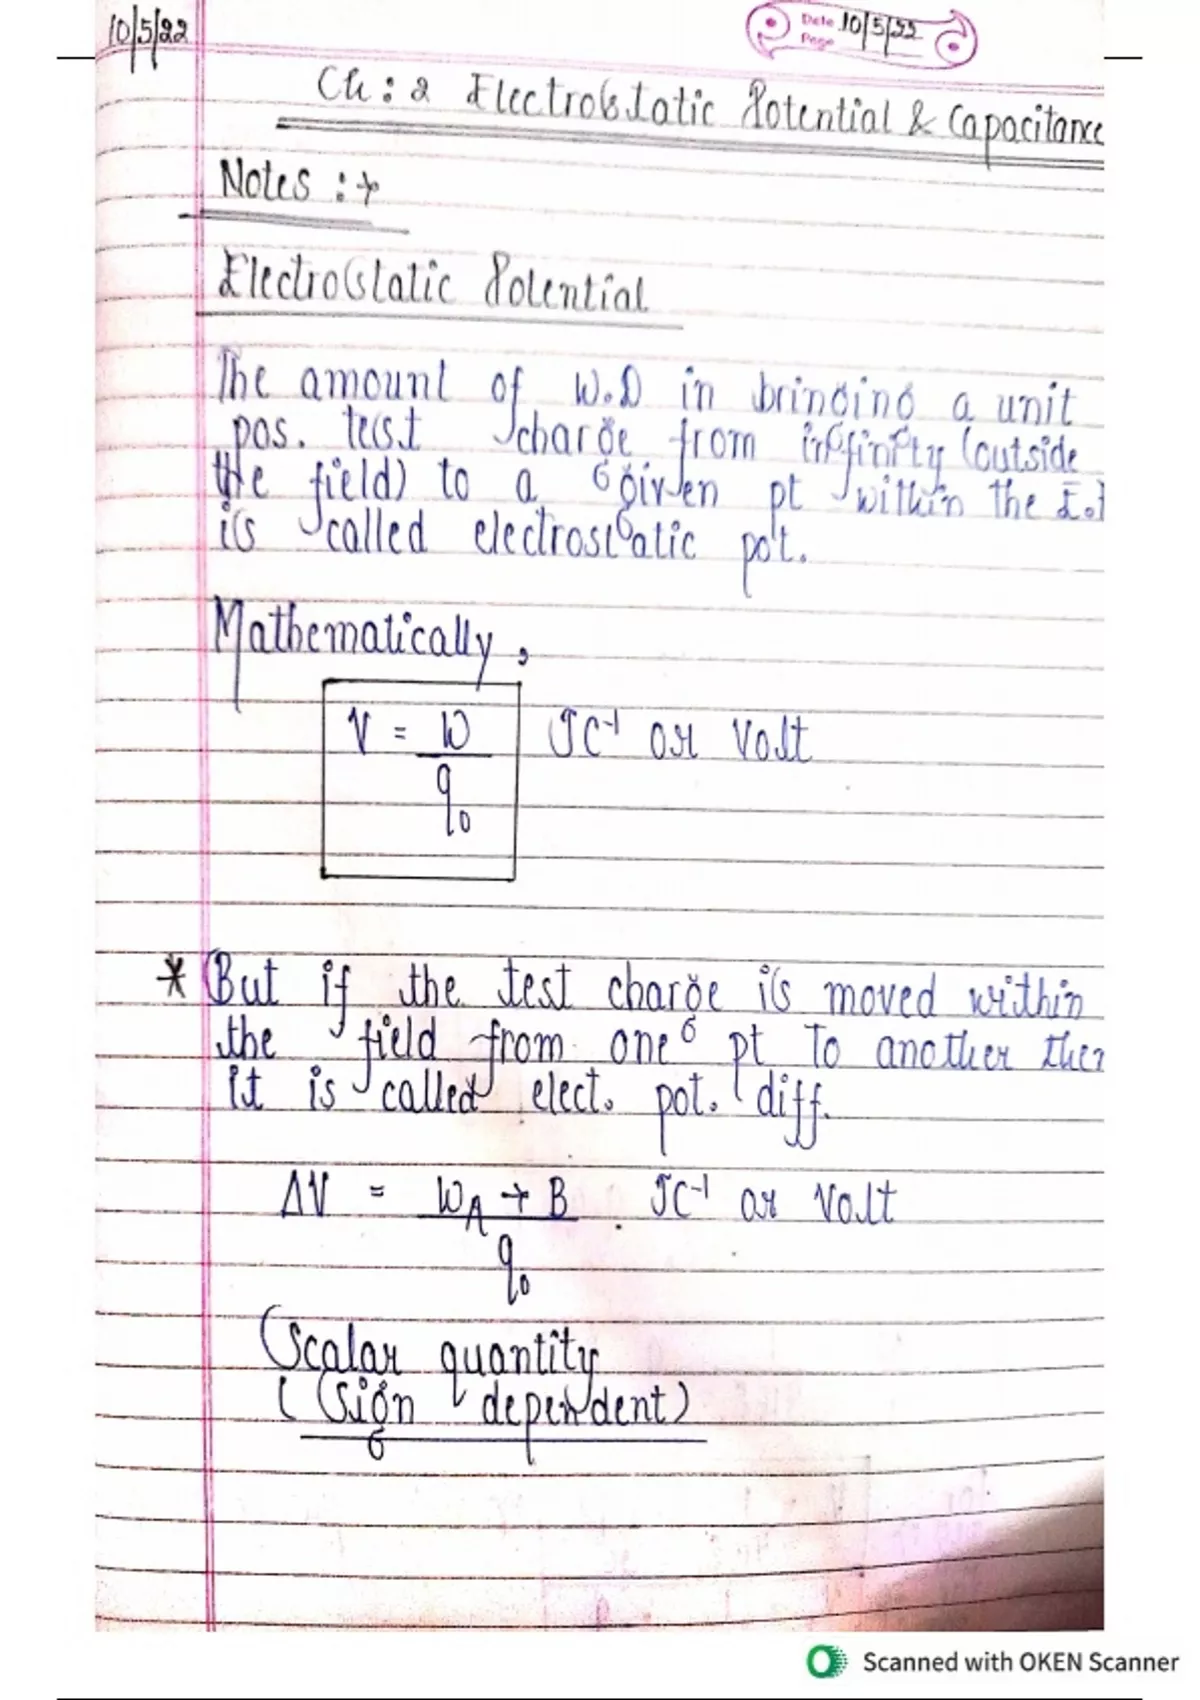 10/5/22
Date 10/5/22
Page
Ch : 2 Electrostatic Potential & Capacitance
Notes :→
Electrostatic Potential
The amount of W.D in bringing a unit
pos. test charge from infinity (outside
the field) to a given pt within the E.f
is called electrostatic pot.
Mathematically,
V = W JC⁻¹ or Volt
q₀
* But if the test charge is moved within
the field from one pt To another then
it is called elect. pot. diff.
ΔV = W A → B JC⁻¹ or Volt
q₀
Scalar quantity
(Sign dependent)
Scanned with OKEN Scanner